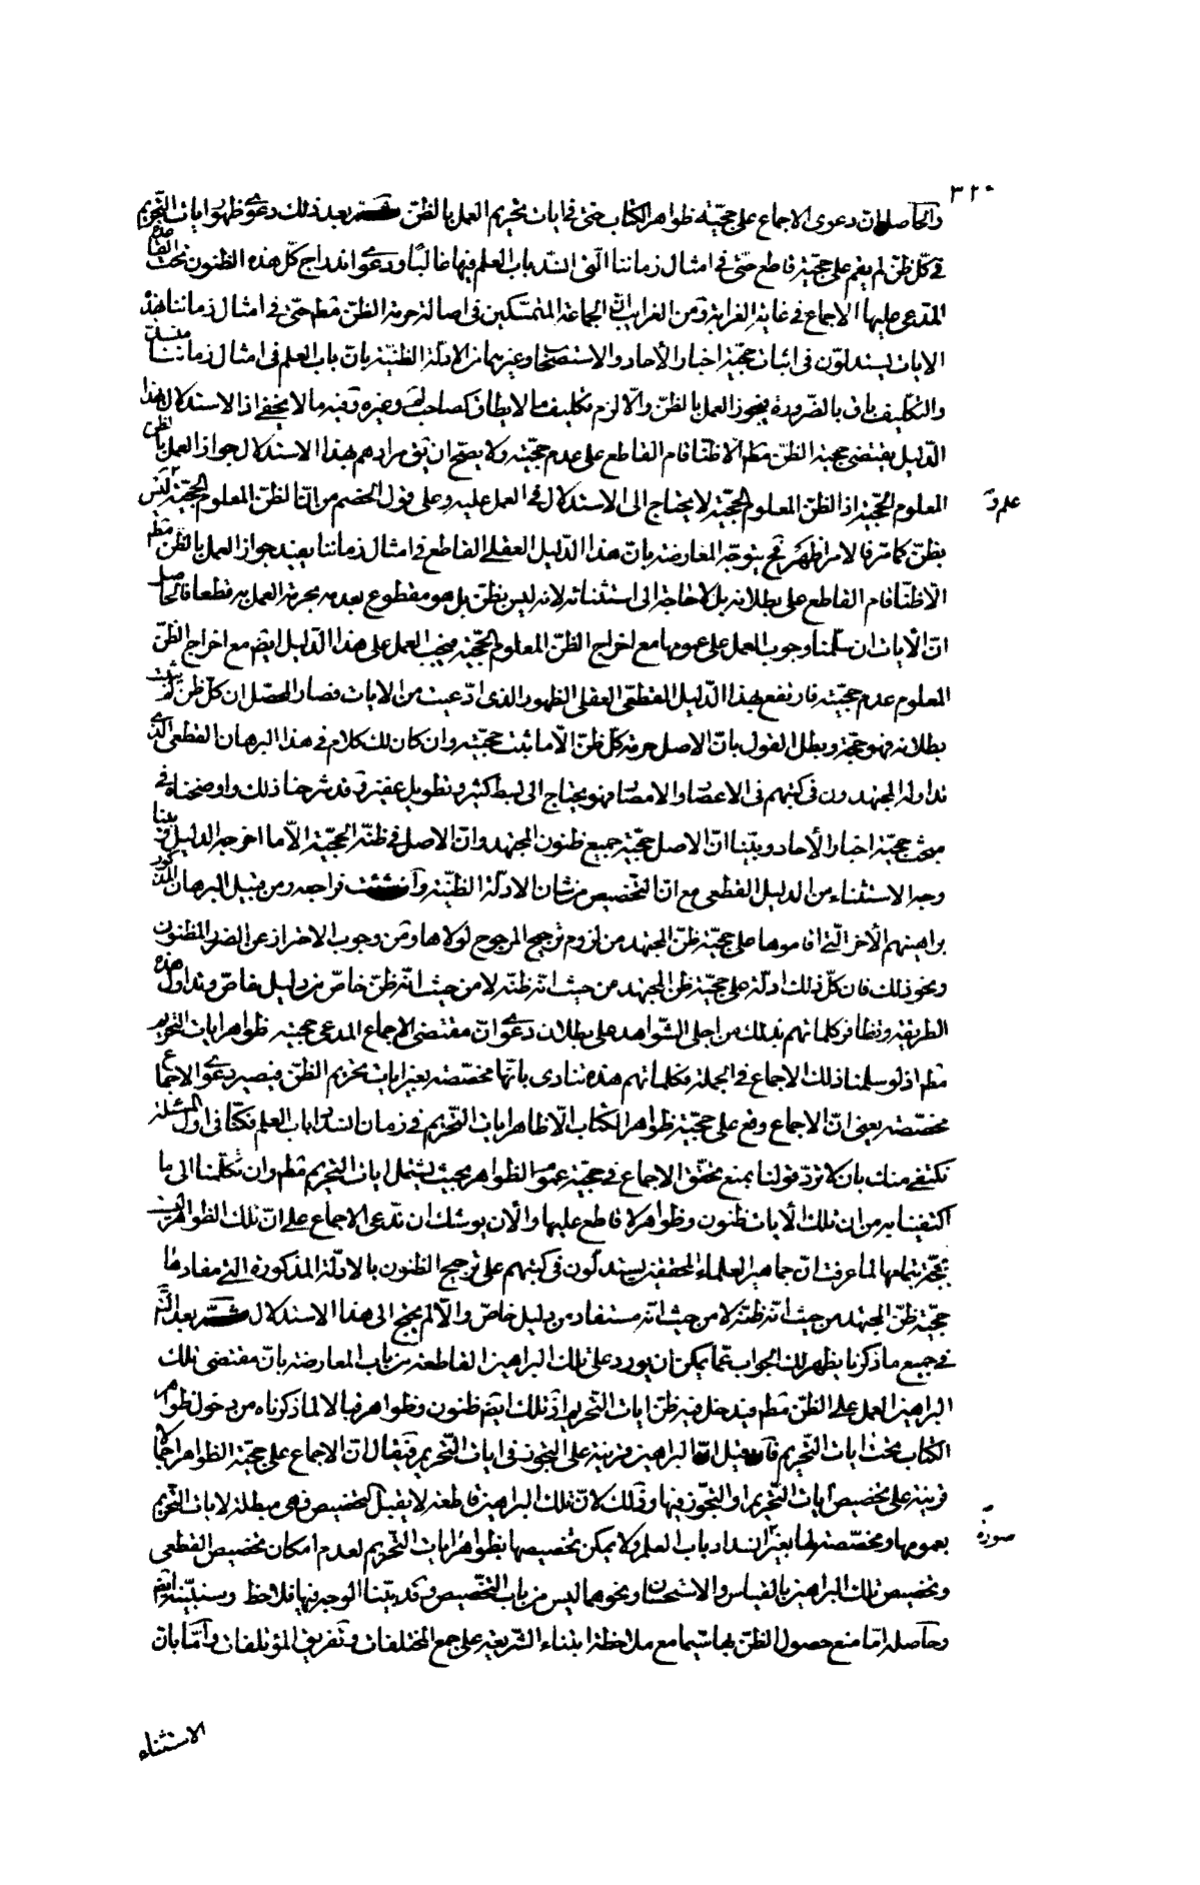 ٣٢٠
والحاصل ان دعوى الاجماع على حجيّة ظواهر الكتاب حتى فى ايات تحريم العمل بالظنّ ثمّ بعد ذلك دعوى ظهور ايات التّحريم
فى كلّ ظنّ لم يقم على حجيّته قاطع حتّى فى امثال زماننا الّتى انسّد باب العلم فيها غالبًا ودعوى اندراج كلّ هذه الظنون تحت
المدّعى عليها الاجماع فى غاية الغرابة ومن الغرايب انّ الجماعة المتمسّكين فى اصالة حرمة الظنّ مطم حتّى فى امثال زماننا بهذه
الايات يستدلّون فى اثبات حجيّة اخبار الأحاد والاستصحاب وغيرهما من الادلّة الظنيّة بانّ باب العلم فى امثال زماننا منسدّ
والتكليف باق بالضّرورة فيجوز العمل بالظنّ والّا لزم تكليف ما لا يطاق كصاحب لم وغيره وفيه ما لا يخفى اذ الاستدلال بهذا
الدّليل يقتضى حجية الظنّ مطم الّا ظنّا قام القاطع على عدم حجيّته ولا يصحّ ان يق مرادهم بهذا الاستدلال جواز العمل بالظنّ
المعلوم الحجيّة اذ الظنّ المعلوم الحجيّة لا يحتاج الى الاستدلال فى العمل عليه وعلى قول الخصم من انّ الظنّ المعلوم الحجيّة ليس
بظنّ كما مرّ فالامر اظهر فح يتوجّه المعارضة بانّ هذا الدّليل العقلى القاطع فى امثال زماننا يفيد جواز العمل بالظنّ مطم
الّا ظنّا قام القاطع على بطلانه بل لا حاجة الى استثنائه لانه ليس بظنّ بل هو مقطوع بعدمه بحرمة العمل به قطعا فالحاصل
انّ الأيات ان سلّمنا وجوب العمل على عمومها مع اخراج الظنّ المعلوم الحجيّة فيجب العمل على هذا الدّليل ايضم مع اخراج الظنّ
المعلوم عدم حجيّته فارتفع بهذا الدّليل القطعى العقلى الظهور الذى ادّعيت من الايات فصار المحصّل ان كلّ ظن لم يثبت
بطلانه فهو حجّة وبطل القول بانّ الاصل حرمة كلّ ظنّ الّا ما ثبت حجيّته وان كان لك كلام فى هذا البرهان القطعى الّذى
تداوله المجتهدون فى كتبهم فى الاعصار والامصار فهو يحتاج الى بسط كثير وتطويل عقير وقد شرحنا ذلك واوضحناه فى
مبحث حجيّة اخبار الأحاد وبيّنا انّ الاصل حجيّة جميع ظنون المجتهد وانّ الاصل فى ظنّه الحجيّة الّا ما اخرجه الدليل وبيّنا
وجه الاستثناء من الدليل القطعى مع انّ التّخصيص من شان الادلّة الظنيّة وان شئت فراجعه ومن قبيل البرهان المذكور
براهينهم الأخر الّتى اقاموها على حجيّة ظنّ المجتهد من لزوم ترجيح المرجوح لولاها ومن وجوب الاحتراز عن الضرر المظنون
ونحو ذلك فان كلّ ذلك ادلّة على حجيّة ظن المجتهد من حيث انّه ظنّه لا من حيث انّه ظنّ خاصّ من دليل خاصّ وتداول هذه
الطريقة وتظافر كلماتهم بذلك من اجلى الشّواهد على بطلان دعوى انّ مقتضى الاجماع المدعى حجية ظواهر ايات التحريم
مطم اذ لو سلمنا ذلك الاجماع فى الجملة فكلماتهم هذه تنادى بانّها مخصّصة بغير ايات تحريم الظنّ فيصير دعوى الاجماع
مخصّصة يعنى انّ الاجماع وقع على حجيّة ظواهر الكتاب الّا ظاهر ايات التّحريم فى زمان انسداد باب العلم فكنّا فى اول المسئلة
نكتفى منك بان لا تردّ قولنا بمنع تحقّق الاجماع فى حجيّة عموم الظواهر بحيث يشمل ايات التحريم مطم وان تكلّمنا الى ما
اكتفينا به من ان تلك الأيات ظنون وظواهر لا قاطع عليها والأن يوشك ان ندّعى الاجماع على انّ تلك الظواهر ليست
بحجّة بتمامها لما عرفت انّ جماهير العلماء المحققين يستدلّون فى كتبهم على ترجيح الظنون بالادلّة المذكورة التى مفادها
حجيّة ظنّ المجتهد من حيث انّه ظنّه لا من حيث انّه مستفاد من دليل خاصّ والّا لم يحتج الى هذا الاستدلال ثمّ بعد التّامّل
فى جميع ما ذكرنا يظهر لك الجواب عمّا يمكن ان يورد على تلك البراهين القاطعة من باب المعارضة بانّ مقتضى تلك
البراهين العمل على الظنّ مطم فيدخل فيه ظنّ ايات التّحريم اذ تلك ايضم ظنون وظواهر قبالا لما ذكرناه من دخول ظواهر
الكتاب تحت ايات التّحريم فان قيل انّ البراهين قرينة على التجوز فى ايات التّحريم فيقال انّ الاجماع على حجيّة الظواهر اجمالا
قرينة على تخصيص ايات التّحريم او التّجوّز فيها وذلك لانّ تلك البراهين قاطعة لا يقبل التخصيص فهى مبطلة لايات التّحريم
بعمومها ومخصّصة لها بغير انسداد باب العلم ولا يمكن تخصيصها بظواهر ايات التحريم لعدم امكان تخصيص القطعى
وتخصيص تلك البراهين بالقياس والاستحسان ونحوهما ليس من باب التّخصيص وقد بيّنا الوجه فيها فلاحظ وسنبيّنه ايضم
وحاصله امّا منع حصول الظنّ بها سيّما مع ملاحظة ابتناء الشّريعة على جمع المختلفات وتفريق المؤتلفات وامّا بانّ
صورة
الاستثناء